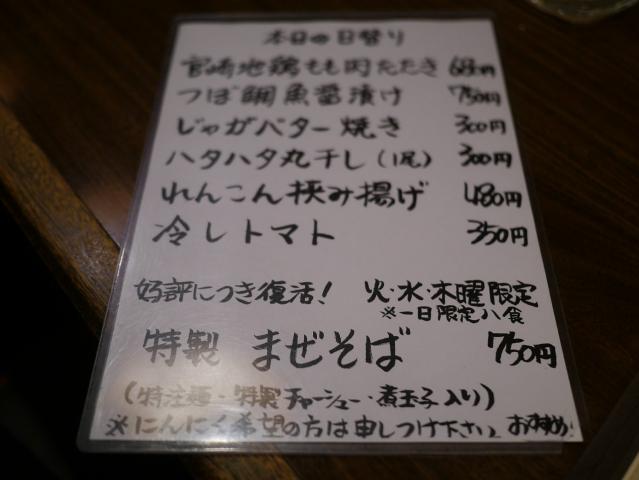 本日の日替り
宮崎地鶏もも肉たたき 680円
つぼ鯛魚醤漬け 750円
じゃがバター焼き 300円
ハタハタ丸干し(1尾) 300円
れんこん挟み揚げ 480円
冷しトマト 350円
好評につき復活! 火・水・木曜限定
※一日限定八食
特製 まぜそば 750円
(特注麺・特製チャーシュー・煮玉子入り)
※にんにく希望の方は申しつけ下さい。おすすめ!